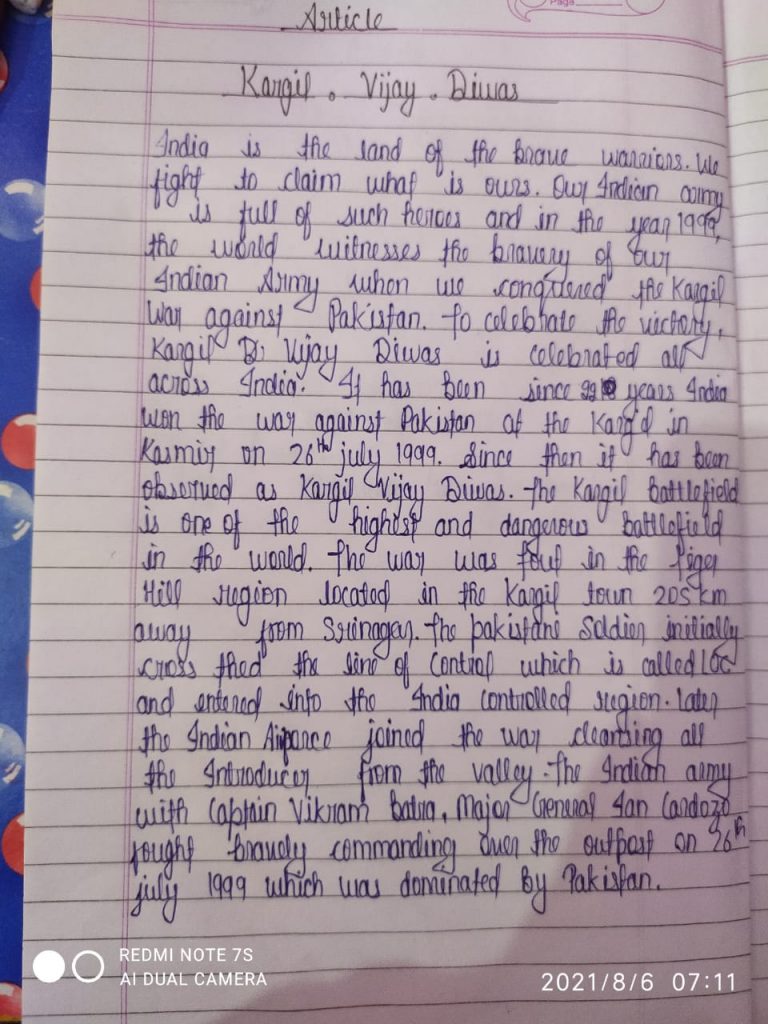 Page
Article
Kargil . Vijay . Diwas
India is the land of the brave warriors. We
fight to claim what is ours. Our Indian army
is full of such heroes and in the year 1999,
the world witnesses the bravery of our
Indian Army when we conqured the Kargil
War against Pakistan. To celebrate the victory,
Kargil Di Vijay Diwas is celebrated all
across India. It has been since years India
won the war against Pakistan at the Kargil in
Kasmir on 26th july 1999. Since then it has been
observed as Kargil Vijay Diwas. The Kargil battlefield
is one of the highest and dangerous battlefield
in the world. The war was fout in the Tiger
Hill region located in the Kargil town 205 km
away from Srinagar. The pakistani Soldier initially
cross thed the line of Control which is called LOC
and entered into the India controlled region. Later
the Indian Airporce joined the war cleansing all
the Introducer from the valley. The Indian army
with Captain Vikram Batra, Major General Ian Cardozo
fought bravely commanding over the outpost on 26th
july 1999 which was dominated By Pakistan.
REDMI NOTE 7S
AI DUAL CAMERA
2021/8/6 07:11